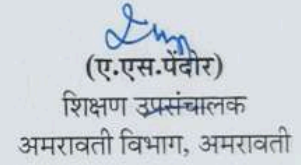 (ए.एस.पेंदोर)
शिक्षण उपसंचालक
अमरावती विभाग, अमरावती